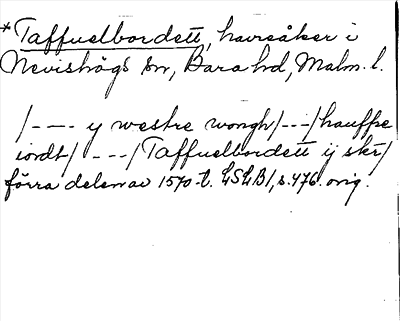 *Taffuelbordett, havreåker i
Nevishögs sn, Bara hd, Malm. l.
/---- y westre wongh/---/hauffre
iordt/ ---/Taffuelbordett ij skr/
förra delen av 1570-t. LSLB1, s.476. orig.